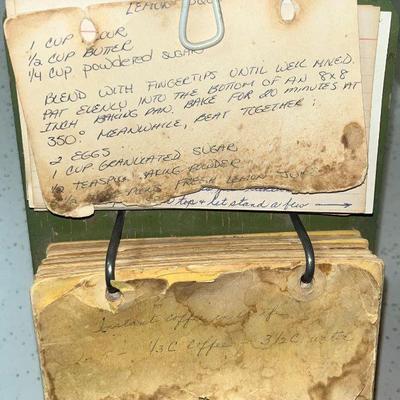 LEMON
1 CUP FLOUR
1/2 CUP BUTTER
1/4 CUP POWDERED SUGAR
BLEND WITH FINGERTIPS UNTIL WELL MIXED.
PAT EVENLY INTO THE BOTTOM OF AN 8X8
INCH BAKING PAN. BAKE FOR 20 MINUTES AT
350°. MEANWHILE, BEAT TOGETHER:
2 EGGS
1 CUP GRANULATED SUGAR
1/2 TEASPOON BAKING POWDER
FRESH LEMON JUICE
top & let stand a few →
Instant coffee
1/3 C Coffee - 3 1/2 C water